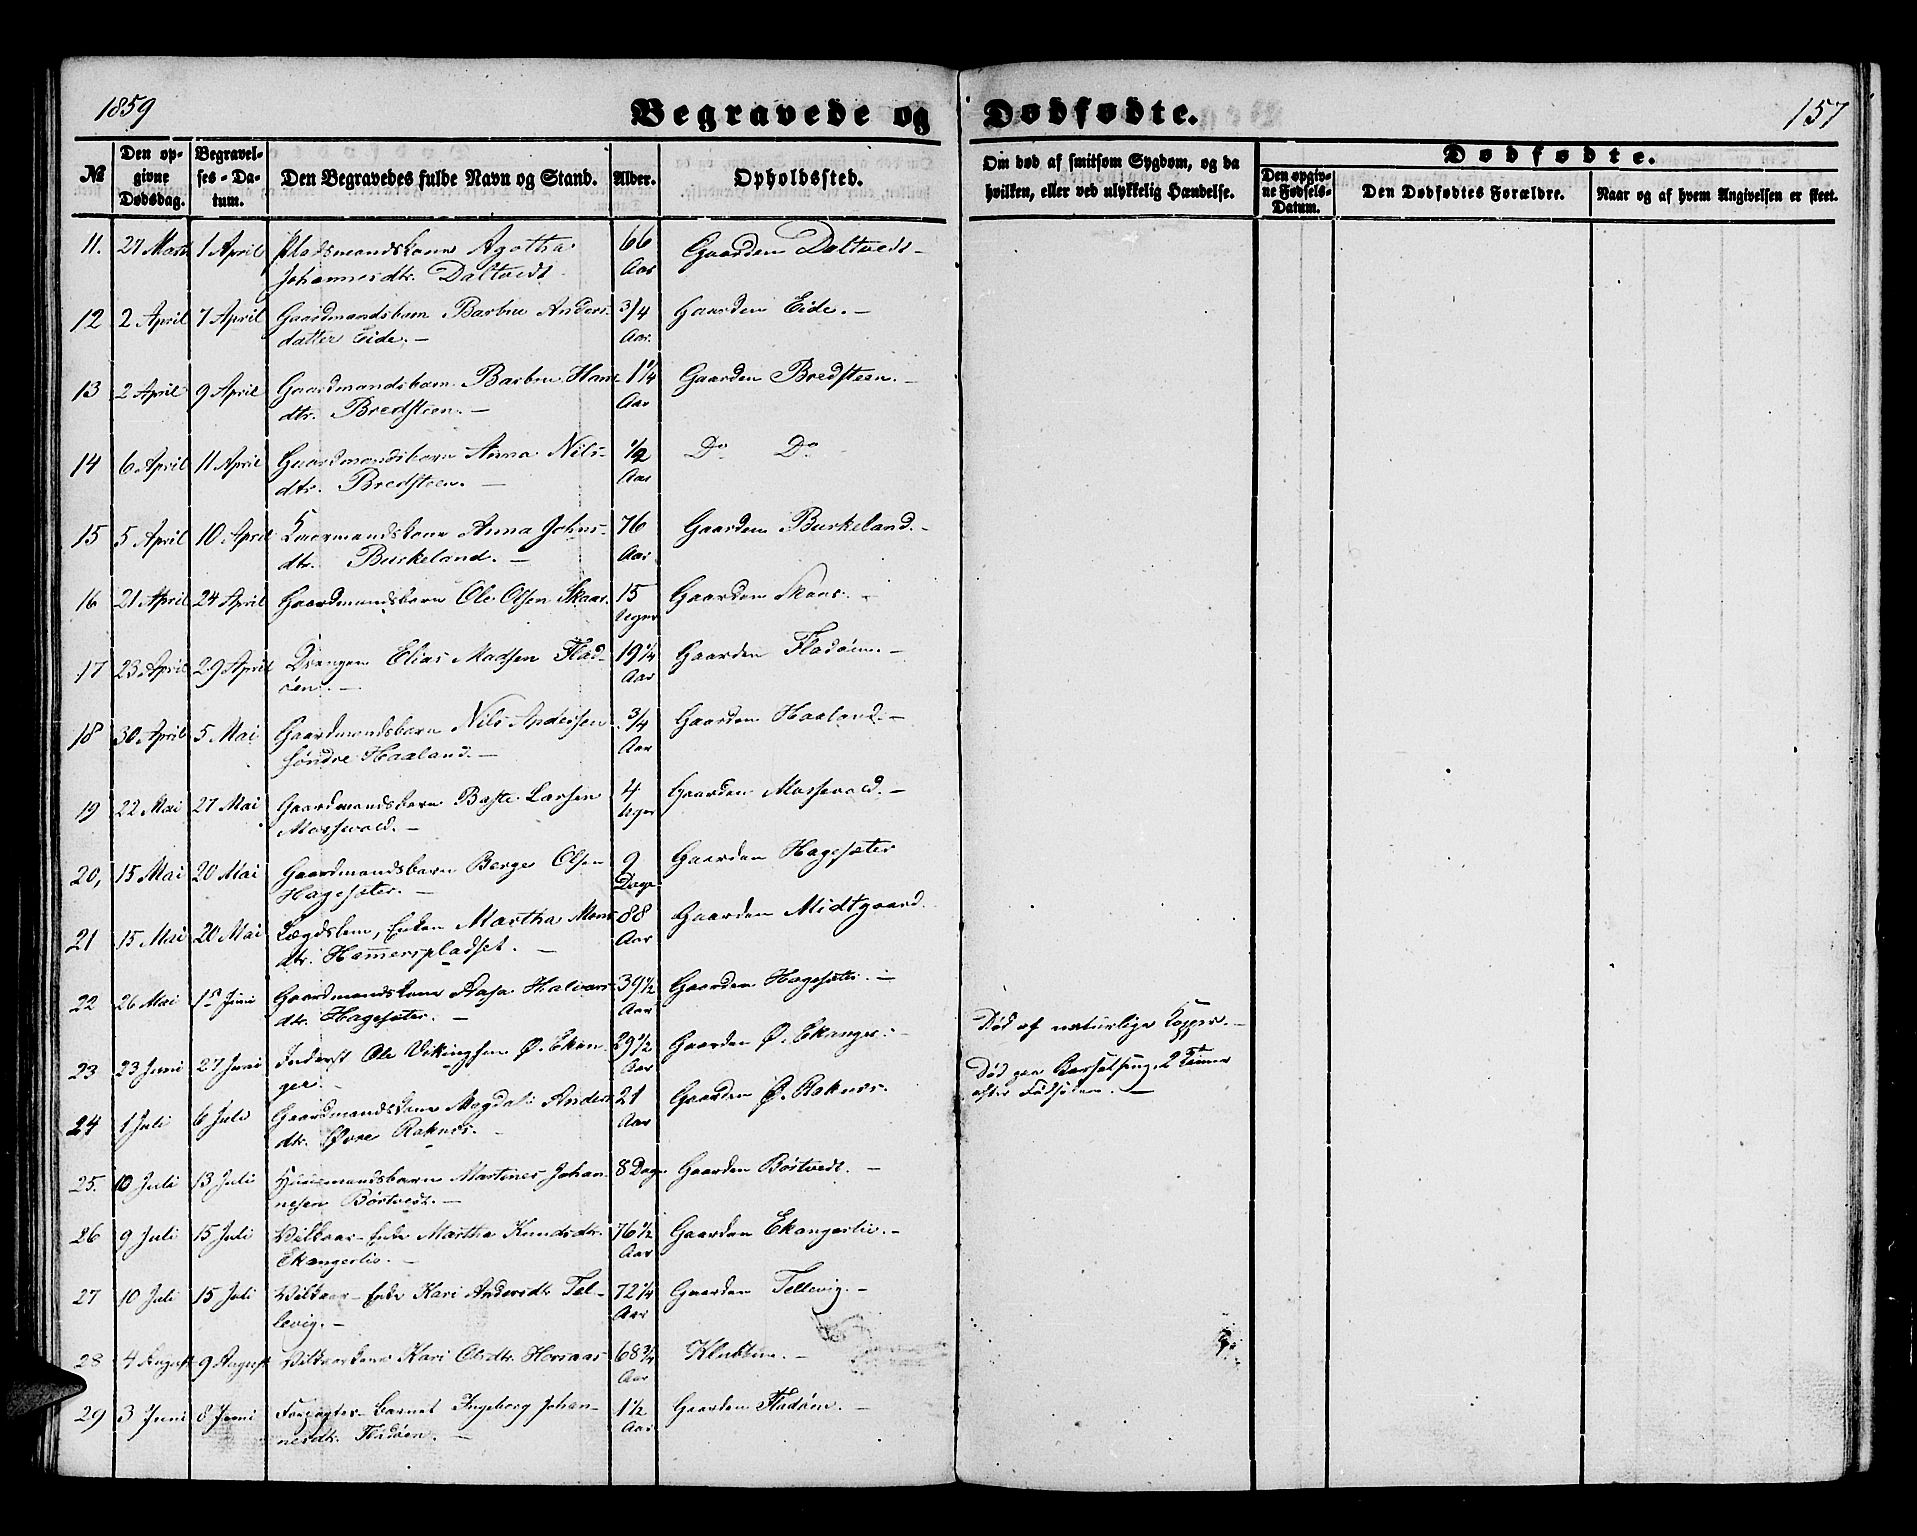 1859
Begravede og Dødfødte.
157
№
Den opgivne Dødsdag.
Begravelses-Datum.
Den Begravedes fulde Navn og Stand.
Alder.
Opholdssted.
Om død af smitsom Sygdom, og da hvilken, eller ved ulykkelig Hændelse.
Dødfødte.
Den opgivne Fødsels-Datum.
Den Dødfødtes Forældre.
Naar og af hvem Angivelsen er skeet.
11. 27 Marts 1 April Pladsmandskone Agatha 66 Gaarden Daltvedt -
Johannesdtr. Daltvedt. Aar
12 2 April 7 April Gaardmandsbarn Barbru Anders- 3/4 Gaarden Eide. -
datter Eide. - Aar.
13 2 April 9 April Gaardmandsbarn Barbru Hans 1 1/4 Gaarden Bredsteen. -
dtr. Bredsteen. - Aar
14 6 April 11 April Gaardmandsbarn Anna Nils- 1/2 Do Do
dtr. Bredsteen. - Aar
15 5 April 10 April Anna Johns- 76 Gaarden Burkeland. -
dtr. Burkeland. - Aar.
16 21 April 24 April Gaardmandsbarn Ole Olsen Skaar. 15 Gaarden Skaar. -
Uger
17 23 April 29 April Drengen Elias Madsen Flad- 19 1/4 Gaarden Fladøen. -
øen. - Aar
18 30 April 5 Mai Gaardmandsbarn Nils Andersen 3/4 Gaarden Haaland. -
søndre Haaland. - Aar
19 22 Mai 27 Mai Gaardmandsbarn Larsen 4 Gaarden Mossevold. -
Mossevold. - Uger
20, 15 Mai 20 Mai Gaardmandsbarn Berge Olsen 9 Gaarden Hagesæter
Hagesæter. - Dage
21 15 Mai 20 Mai Lægdslem, Enken Martha Mons 88 Gaarden Midtgaard.
dtr. Hammerspladset. - Aar
22 26 Mai 1ste Juni Gaardmandskone Halvors 39 1/2 Gaarden Hagesæter. -
dtr. Hagesæter. - Aar
23 23 Juni 27 Juni Inderst Ole Vikingsen Ø. Ekan- 29 1/2 Gaarden Ø. Ekanger. - Død af naturlige Kopper. -
ger. - Aar
24 1 Juli 6 Juli Gaardmandskone Magdali Anders 21 Gaarden Ø. Raknæs. Død paa Barselseng, 2 Timer
dtr. Øvre Raknæs. - Aar efter Fødselen. -
25. 10 Juli 13 Juli Huusmandsbarn Martines Johan- 8 Dage Gaarden Børtvedt. -
nesen Børtvedt. -
26 9 Juli 15 Juli Vilkaar-Enke Martha Knudsdtr. 76 1/2 Gaarden Ekangerlie. -
Ekangerlie. - Aar
27 10 Juli 15 Juli Vilkaar-Enke Kari Andersdtr. Tel- 72 1/4 Gaarden Tellevig. -
levig. - Aar
28 4 August 9 August Vilkaarskone Kari Olsdtr. 68 3/4 -
Aar
29 3 Juni 8 Juni barnet Ingeborg Johan- 1 1/2 Gaarden Fladøen. -
nesdtr. Fladøen. - Aar